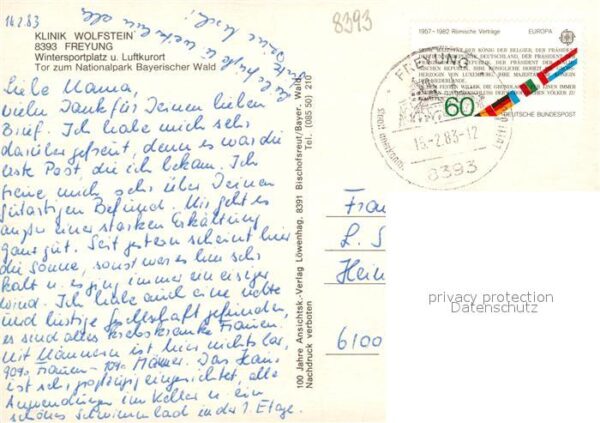 14.2.83
8393
KLINIK WOLFSTEIN
8393 FREYUNG
Wintersportplatz u. Luftkurort
Tor zum Nationalpark Bayerischer Wald
Liebe Mama,
vielen Dank für Deinen lieben
Brief. Ich habe mich sehr
darüber gefreut, denn es war die
erste Post, die ich bekam. Ich
freue mich sehr über Deinen
gutartigen Befund. Mir geht es
außer einer starken Erkältung
ganz gut. Seit gestern scheint hier
die Sonne, sonst war es hier sehr
kalt u. es ging immer ein eisiger
Wind. Ich habe auch eine nette
und lustige Gesellschaft gefunden,
es sind alles krebskranke Frauen.
Mit Männern ist hier nichts los,
90% Frauen - 10% Männer. Das Haus
ist sehr großzügig eingerichtet, alle
Anwendungen im Keller u. ein
schönes Schwimmbad in der 1. Etage.
100 Jahre Ansichtsk.-Verlag Löwenhag. 8391 Bischofsreut/Bayer. Wald
Nachdruck verboten
Tel. (085 50) 210
1957-1982 Römische Verträge
EUROPA
60
DEUTSCHE BUNDESPOST
FREYUNG
15.-2.83-12
8393
Frau
L. S
Hein
6100
privacy protection
Datenschutz